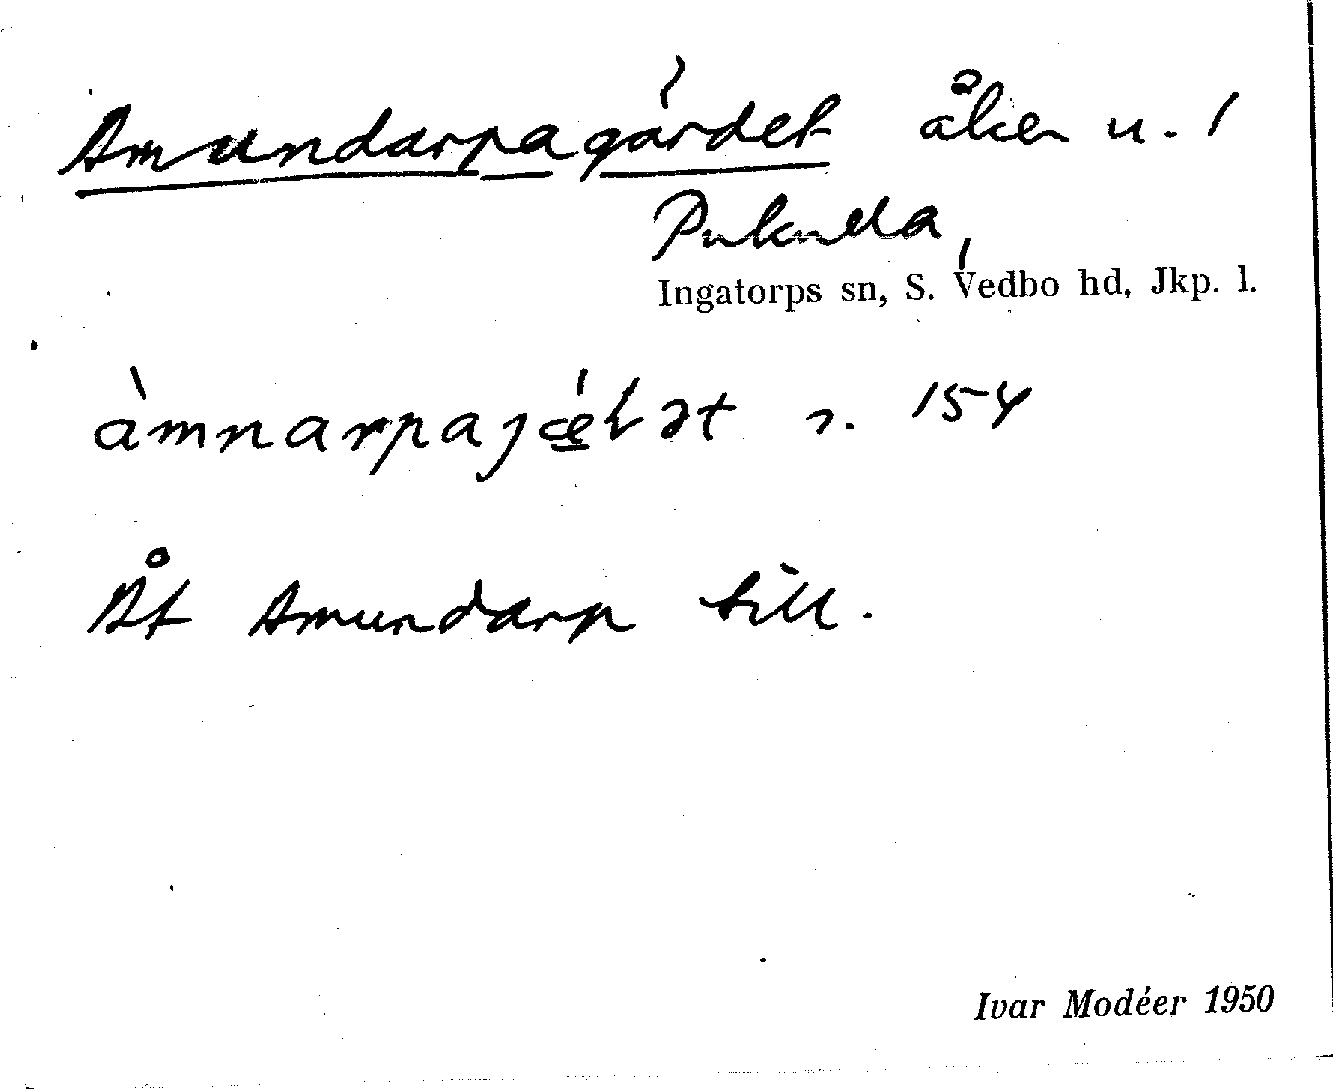 Amundarpagärdet åker u. 1
Pukulla,
Ingatorps sn, S. Vedbo hd, Jkp. l.
àmnarpajǽɫət r. 154
Åt Amundarp till.
Ivar Modéer 1950